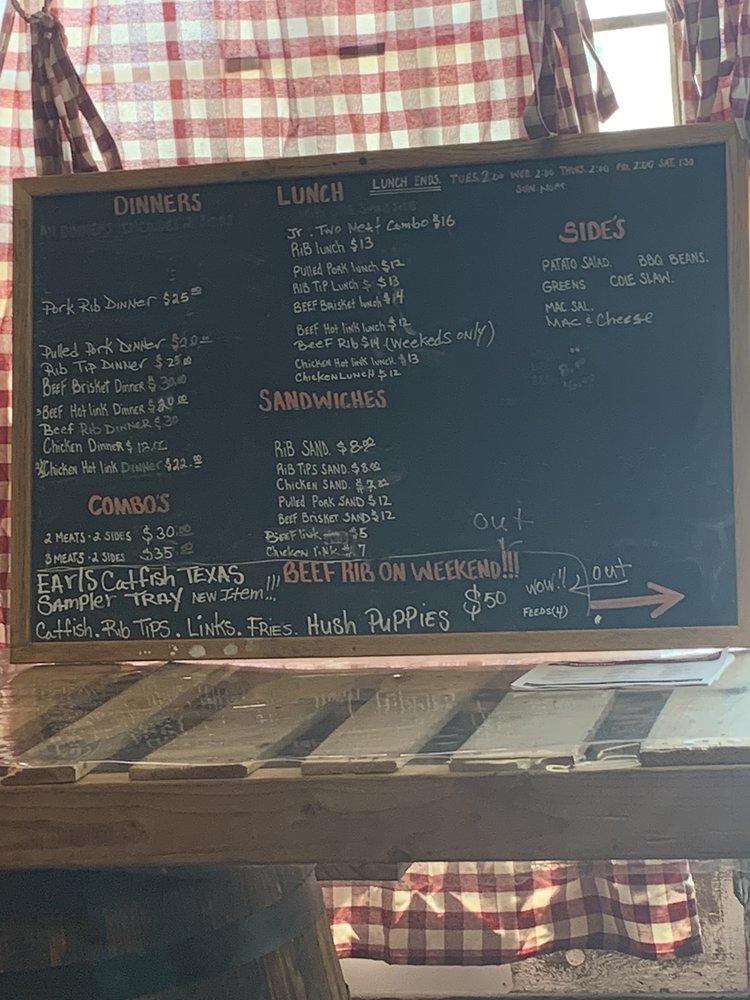 DINNERS
Pork Rib Dinner $25
Pulled Pork Dinner $20
Rib Tip Dinner $25
BEEF Brisket Dinner $30
BEEF Hot link Dinner $20
Beef Rib DINNER $30
Chicken Dinner $
Chicken Hot link DINNER $22
COMBO'S
2 MEATS - 2 SIDES $30
3 MEATS - 2 SIDES $35
LUNCH
LUNCH ENDS. TUES. 2:00 WED. 2:00 THURS. 2:00 FRI. 2:00 SAT. 1:30
SUN.
Jr. Two Meat Combo $16
RIB lunch $13
Pulled Pork lunch $12
RIB TIP LUNCH $ $13
BEEF Brisket lunch $14
BEEF Hot link lunch $12
BEEF RIB $14 (Weekeds ONLY)
Chicken Hot link lunch $13
Chicken LUNCH $12
SANDWICHES
RIB SAND. $8.00
RIB TIPS SAND. $8.00
Chicken SAND.
Pulled Pork SAND $12
BEEF Brisket SAND $12
BEEF link $5
Chicken link 7
SIDE'S
PATATO SALAD. BBQ BEANS.
GREENS COLE SLAW.
MAC SAL.
MAC & CHEESE
out
BEEF RIB ON WEEKEND!!!
EARL'S Catfish TEXAS
Sampler TRAY NEW ITEM!!!
$50
WOW!! out
FEEDS(4)
Catfish. Rib TIPS. LINKS. FRIES. HUSH PUPPIES